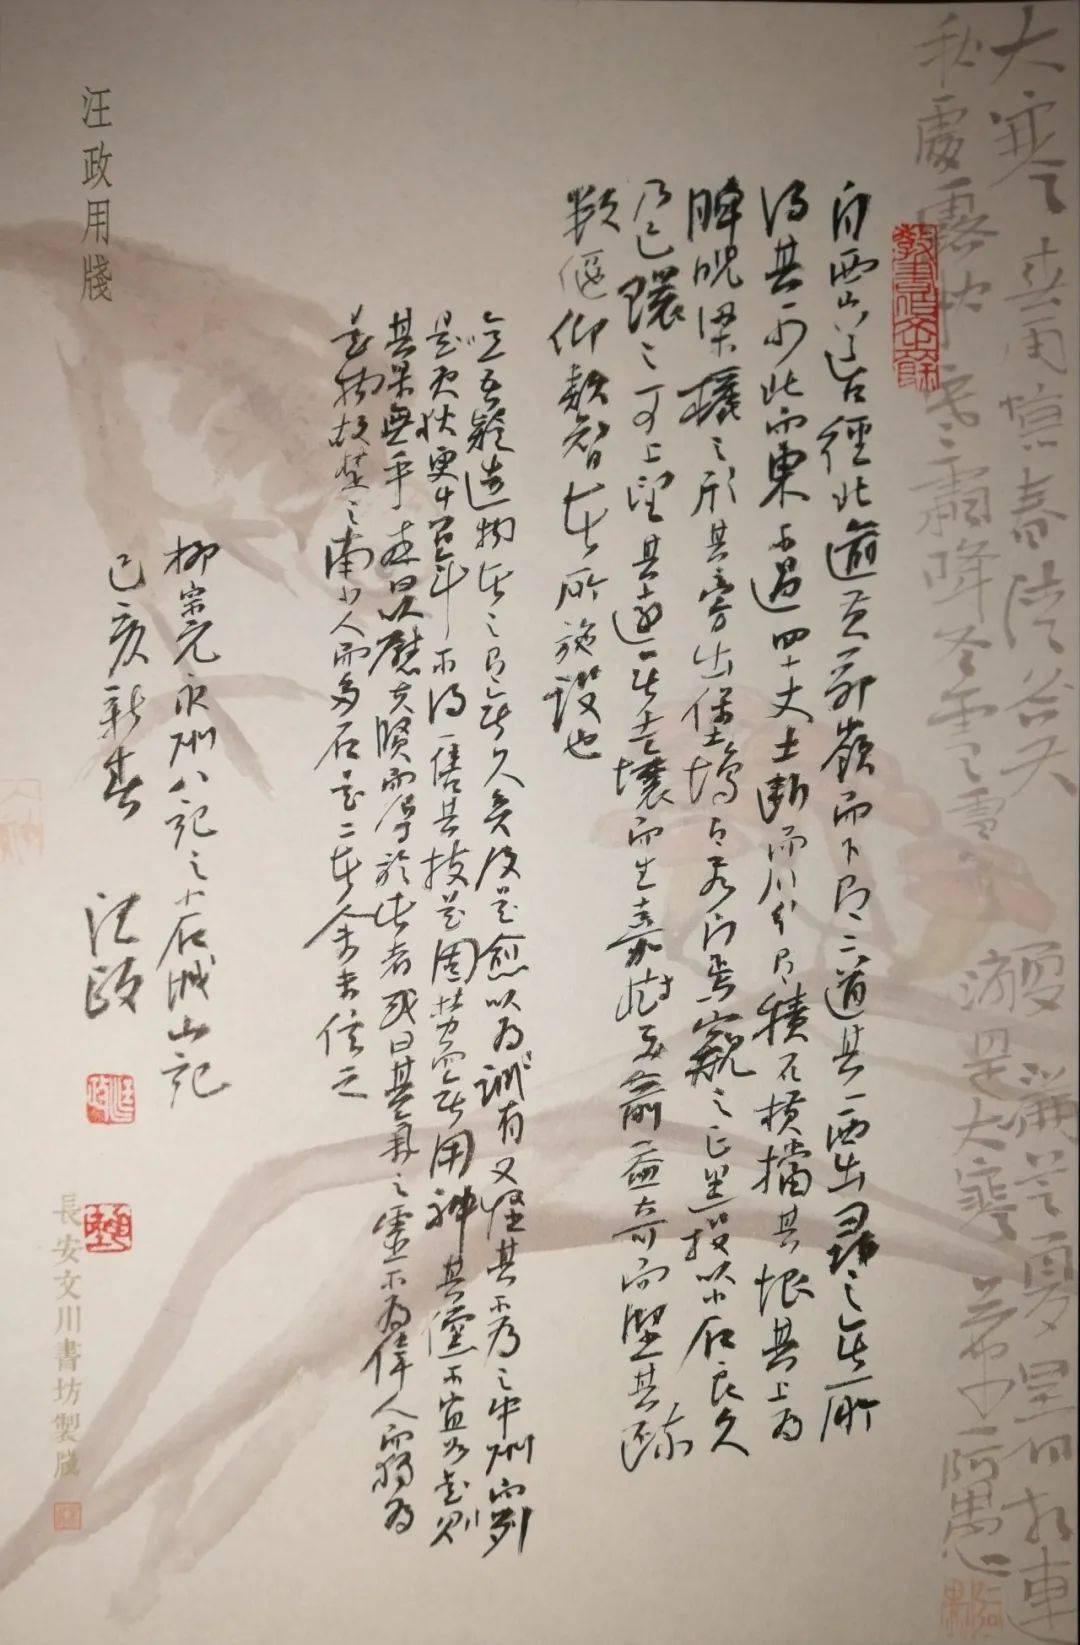 大寒 春雨驚春清谷天 夏滿芒夏暑相連
秋處露秋寒霜降冬雪雪 是大寒
自西山道口徑北踰黃茆嶺而下有二道其一西出尋之無所
得其一少北而東不過四十丈土斷而川分有積石橫擋其垠其上為
睥睨梁欐之形其旁出堡塢有若門焉窺之正黑投以小石良久
乃已環之可上望甚遠無土壤而生嘉樹美箭益奇而堅其疏
數偃仰類智者所施設也
噫吾疑造物者之有無久矣及是愈以為誠有又怪其不為之中州而列
是夷狄更千百年不得一售其技是固勞而無用神其儻不宜如是則
其果無乎或曰以慰夫賢而辱於此者或曰其氣之靈不為偉人而獨為
是物故楚之南少人而多石是二者余未信之
柳宗元永州八記之小石城山記
己亥新春 汪政
汪政用牋
長安文川書坊製牋